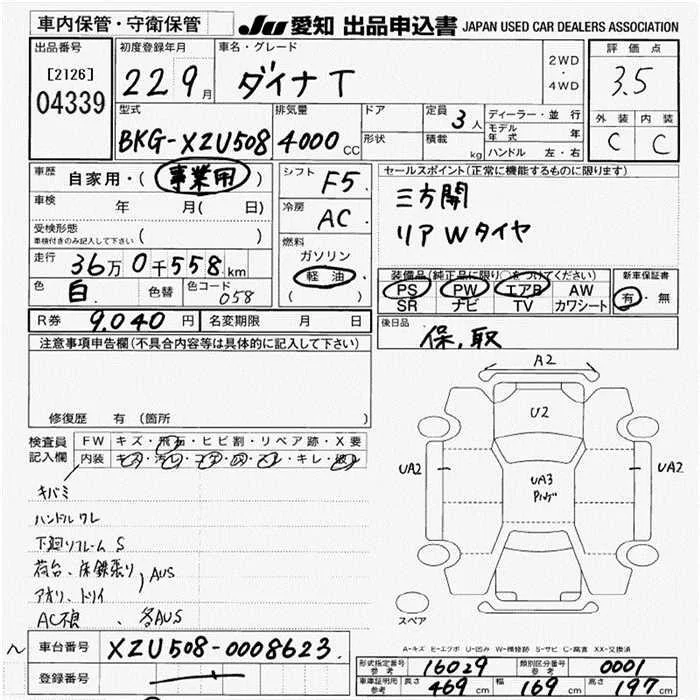 車内保管・守衛保管
JU 愛知 出品申込書 JAPAN USED CAR DEALERS ASSOCIATION
出品番号
[2126]
04339
初度登録年月
22 9月
車名・グレード
ダイナ T
2WD
・
4WD
評価点
3.5
外装 内装
C C
型式
BKG-XZU508
排気量
4000 CC
ドア
形状
定員 3人
積載 kg
ディーラー・並行
モデル年式 年
ハンドル 左・右
車歴 自家用・(事業用)
車検 年 月( 日)
受検形態
車検付きのみ記入して下さい ( )
走行 36万0千558km
色 白 色替 色コード 058
シフト F5
冷房 AC
燃料
ガソリン
軽油
( )
セールスポイント(正常に機能するものに限ります)
三方開
リアWタイヤ
装備品(純正品に限り○をつけてください)
PS PW エアB AW
SR ナビ TV カワシート
新車保証書
有・無
R券 9,040円 名変期限 月 日
後日品 保,取
注意事項申告欄(不具合内容等は具体的に記入して下さい)
修復歴 有 (箇所
検査員記入欄
FW キズ・飛石・ヒビ割・リペア跡・X要
内装 キズ・汚レ・コゲ・穴・スレ・キレ・破レ
キバミ
ハンドルワレ
下廻リフレームS
荷台、床鉄張り
アオリ、トリイ
AUS
AC不良、各AUS
A2
U2
UA2
UA3
UA2
スペア
A-キズ E-エクボ U-凹み W-補修跡 S-サビ C-腐食 XX-交換済
車台番号 XZU508-0008623
登録番号
形式指定番号 参考 16029 類別区分番号 参考 0001
車庫証明用 参考 長さ 469cm 幅 169cm 高さ 197cm